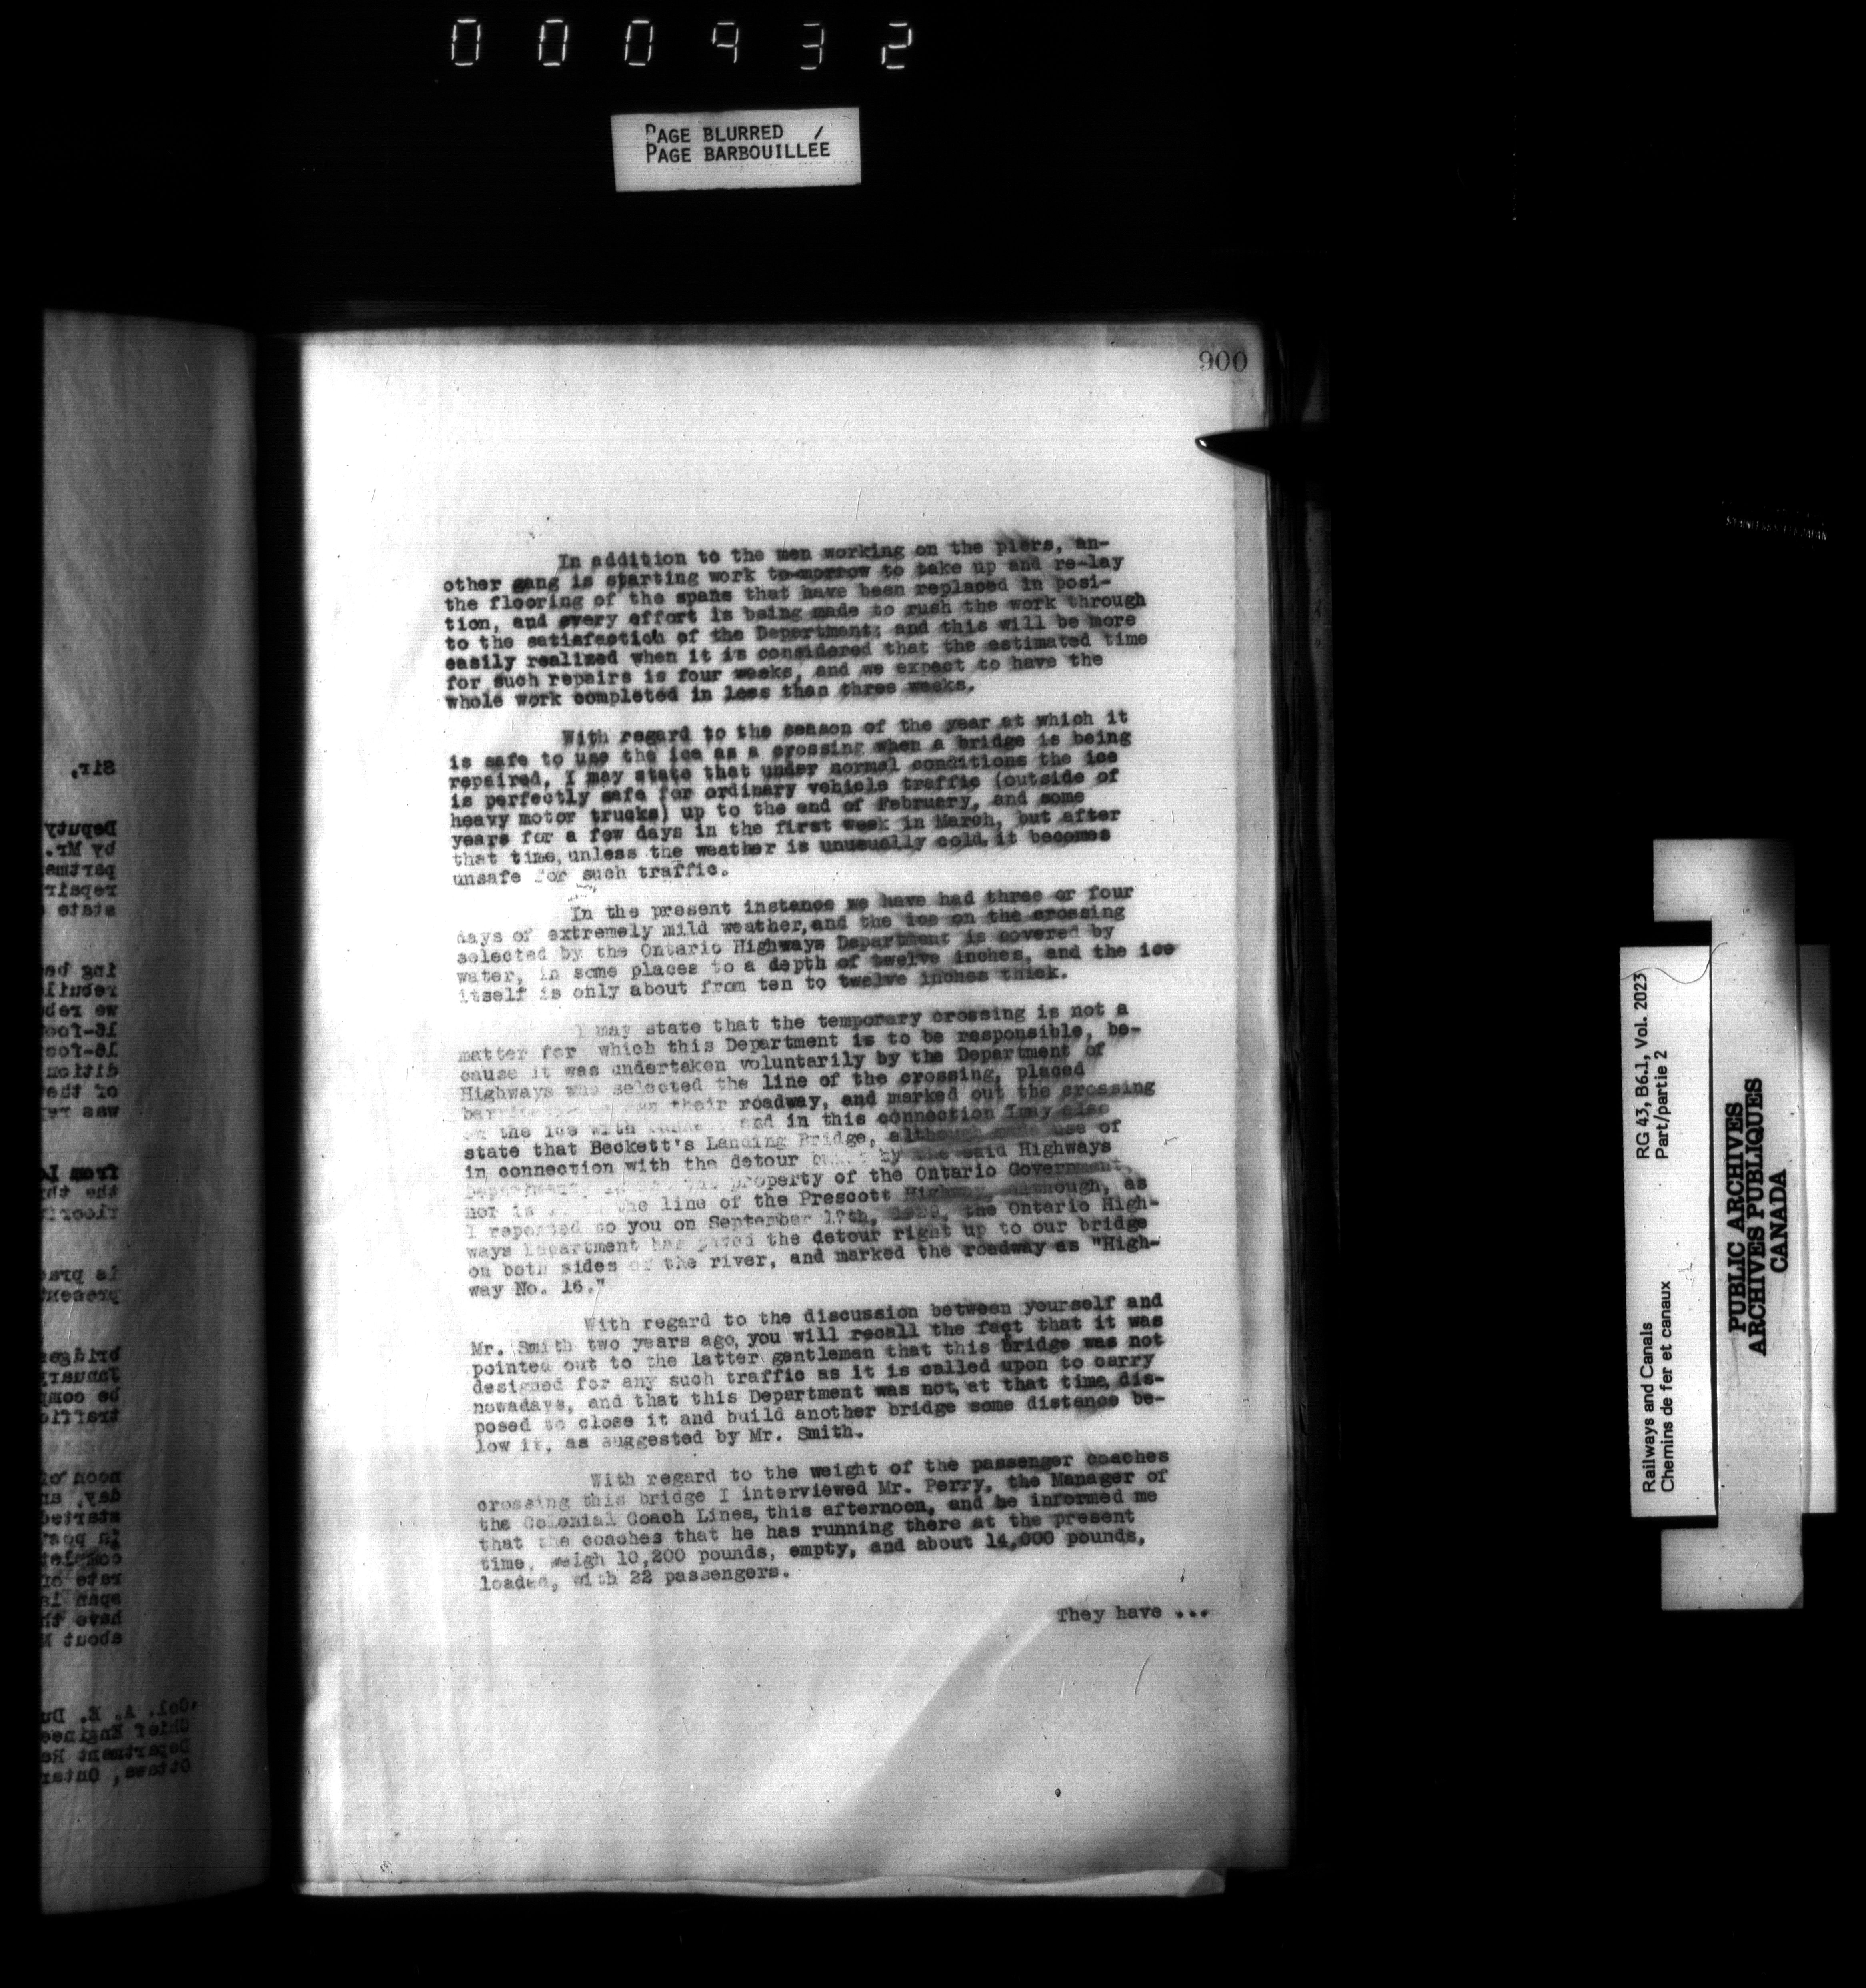 000932
PAGE BLURRED
PAGE BARBOUILLÉE
900
In addition to the men working on the piers, an-
other gang is starting work to-morrow to take up and re-lay
the flooring of the spans that have been replaced in posi-
tion, and every effort is being made to rush the work through
to the satisfaction of the Department; and this will be more
easily realized when it is considered that the estimated time
for such repairs is four weeks, and we expect to have the
whole work completed in less than three weeks.
With regard to the season of the year at which it
is safe to use the ice as a crossing when a bridge is being
repaired, I may state that under normal conditions the ice
is perfectly safe for ordinary vehicle traffic (outside of
heavy motor trucks) up to the end of February, and some
years for a few days in the first week in March, but after
that time, unless the weather is unusually cold, it becomes
unsafe for such traffic.
In the present instance we have had three or four
days of extremely mild weather, and the ice on the crossing
selected by the Ontario Highways Department is covered by
water, in some places to a depth of twelve inches, and the ice
itself is only about from ten to twelve inches thick.
I may state that the temporary crossing is not a
matter for which this Department is to be responsible, be-
cause it was undertaken voluntarily by the Department of
Highways who selected the line of the crossing, placed
their roadway, and marked out the crossing
on the ice with and in this connection I may also
state that Beckett's Landing Bridge, although made use of
in connection with the detour built by the said Highways
Department, property of the Ontario Government,
nor is the line of the Prescott Highway, although, as
I reported to you on September 17th, 1929, the Ontario High-
ways Department has paved the detour right up to our bridge
on both sides of the river, and marked the roadway as "High-
way No. 16."
With regard to the discussion between yourself and
Mr. Smith two years ago, you will recall the fact that it was
pointed out to the latter gentleman that this bridge was not
designed for any such traffic as it is called upon to carry
nowadays, and that this Department was not, at that time, dis-
posed to close it and build another bridge some distance be-
low it, as suggested by Mr. Smith.
With regard to the weight of the passenger coaches
crossing this bridge I interviewed Mr. Perry, the Manager of
the Colonial Coach Lines, this afternoon, and he informed me
that the coaches that he has running there at the present
time, weigh 10,200 pounds, empty, and about 14,000 pounds,
loaded, with 22 passengers.
They have ...
Railways and Canals RG 43, B6.1, Vol. 2023
Chemins de fer et canaux Part/partie 2
PUBLIC ARCHIVES
ARCHIVES PUBLIQUES
CANADA